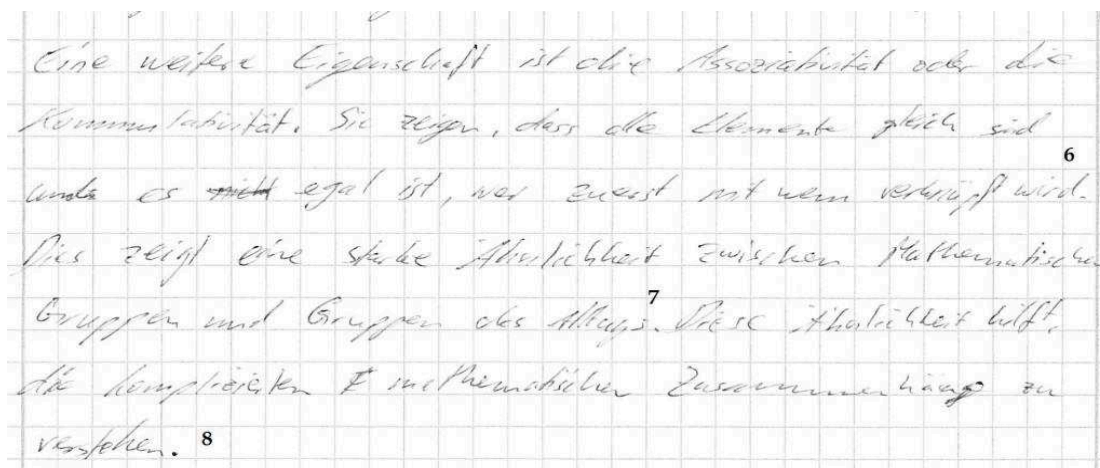 Eine weitere Eigenschaft ist die Assoziativität oder die
Kommutativität. Sie zeigen, dass alle Elemente gleich sind
6
und es nicht egal ist, wer zuerst mit wem verknüpft wird.
Dies zeigt eine starke Ähnlichkeit zwischen Mathematischen
7
Gruppen und Gruppen des Alltags. Diese Ähnlichkeit hilft,
die komplizierten mathematischen Zusammenhänge zu
verstehen. 8